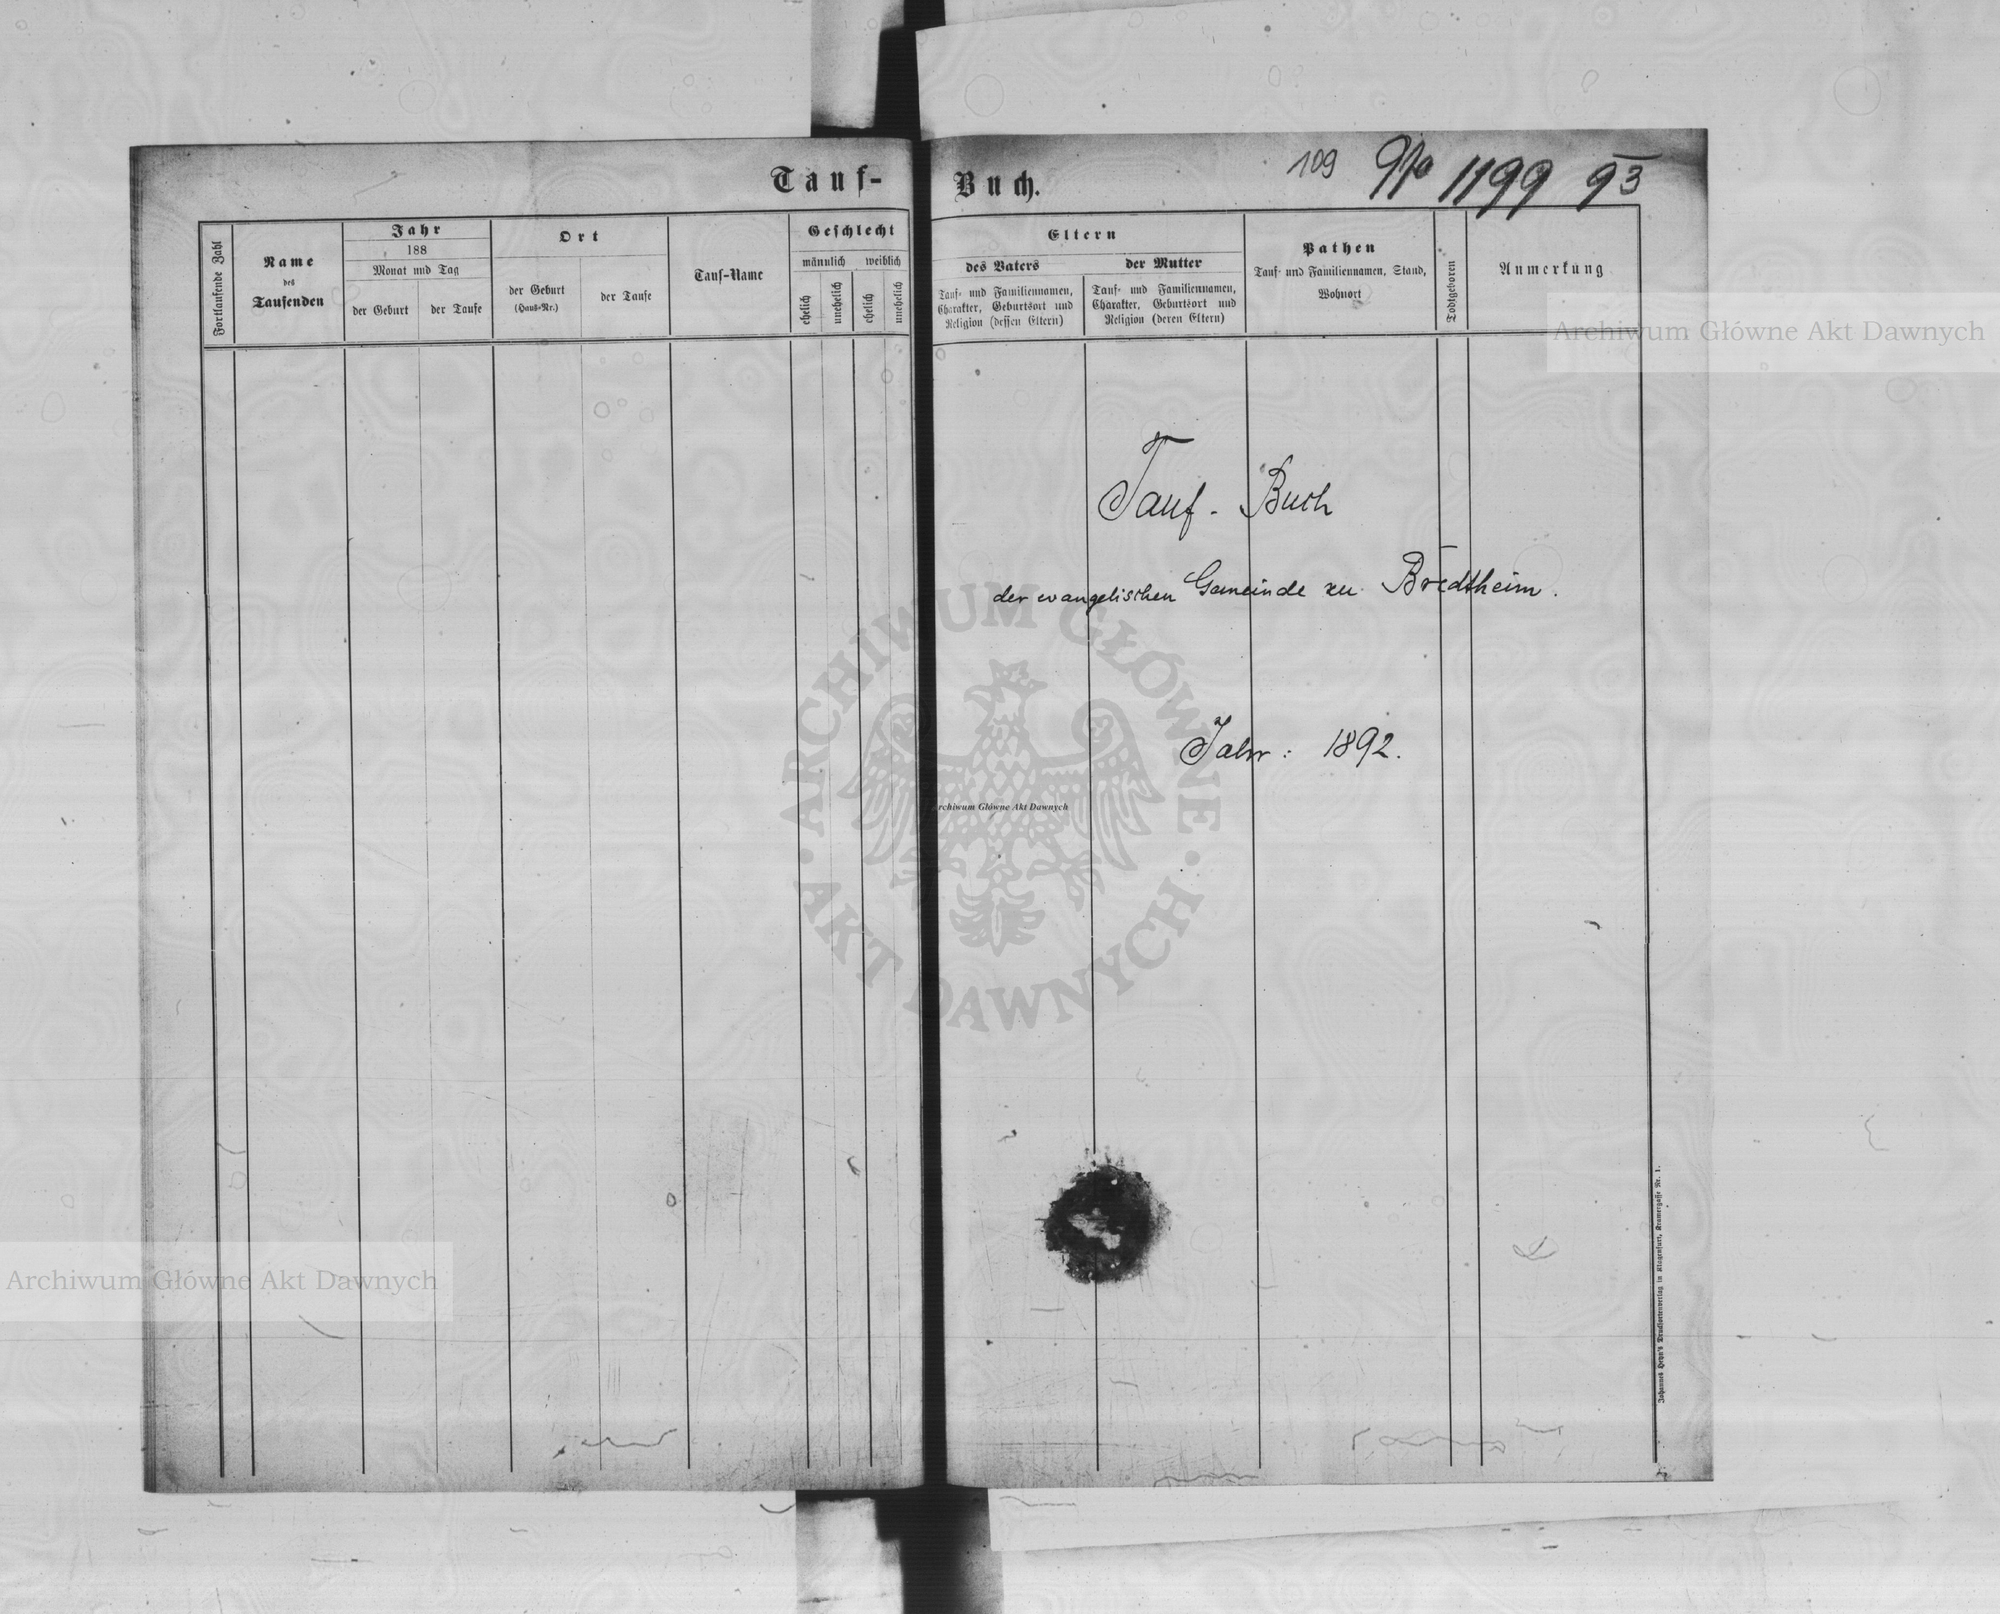 Tauf-
Fortlaufende Zahl
Name
des
Taufenden
Jahr
188
Monat und Tag
der Geburt
der Taufe
Ort
der Geburt
(Haus-Nr.)
der Taufe
Tauf-Name
Geschlecht
männlich weiblich
ehelich
unehelich
ehelich
unehelich
Buch.
109
1199 93
Eltern
des Vaters
Tauf- und Familiennamen,
Charakter, Geburtsort und
Religion (dessen Eltern)
der Mutter
Tauf- und Familiennamen,
Charakter, Geburtsort und
Religion (deren Eltern)
Pathen
Tauf- und Familiennamen, Stand,
Wohnort
Todtgeboren
Anmerkung
Archiwum Główne Akt Dawnych
Tauf- Buch
der evangelischen Gemeinde zu Bredtheim.
Jahr: 1892.
ARCHIWUM GŁÓWNE
AKT DAWNYCH
Archiwum Główne Akt Dawnych
Archiwum Główne Akt Dawnych
Johannes Heyn's Drucksortenverlag in Klagenfurt, Kramergasse Nr. 1.